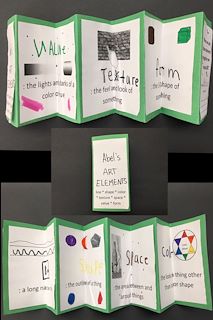 Value
: the lights and darks of a
color value
Texture
: the feel and look of
something
form
shape of
something
Abel's
ART
ELEMENTS
line * shape * color
* texture * space *
value * form
: a long
Shape
: the outline
Space
: the area between and
around things
Color
thing other
shape